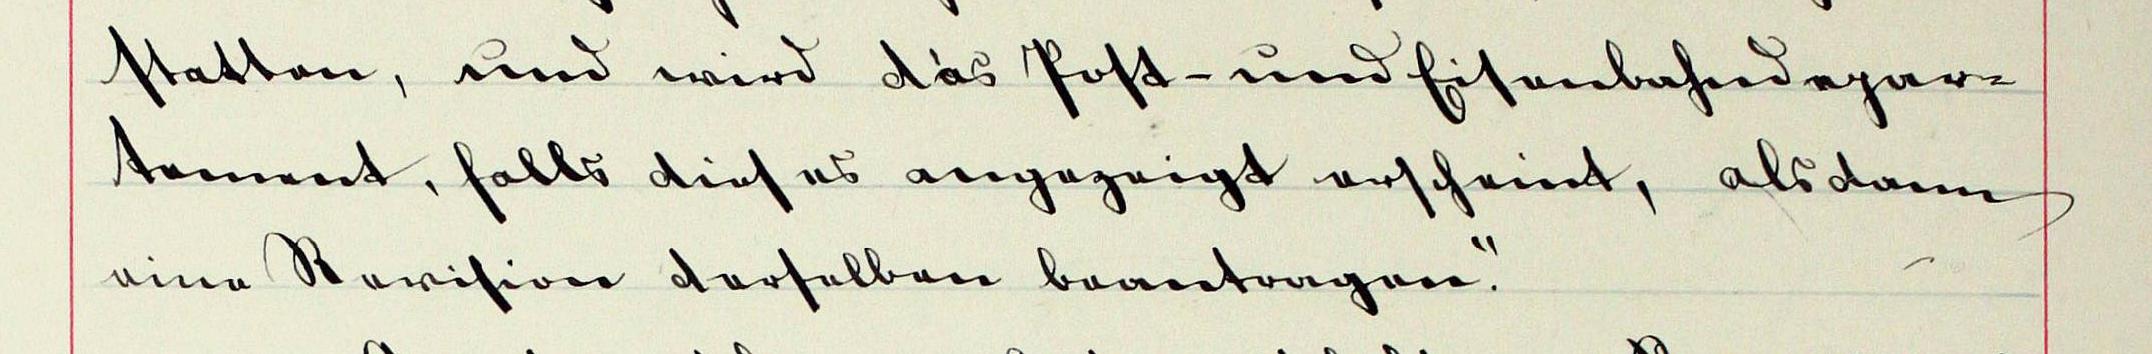 statten, und wird das Post- und Eisenbahndepar=
tement, falls dieses angezeigt erscheint, alsdann
eine Revision derselben beantragen."